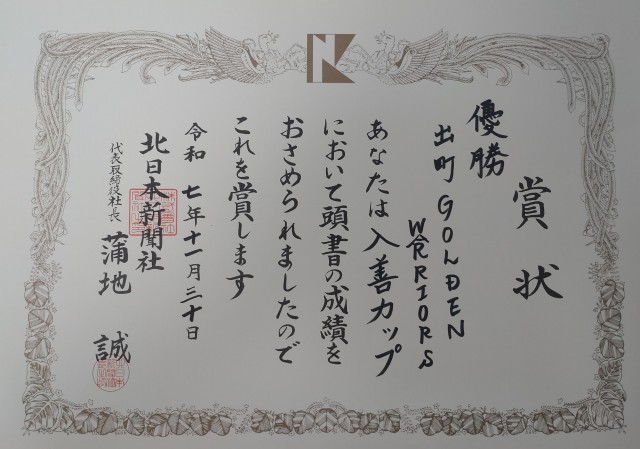 賞状
優勝
出町 GOLDEN
WARRIORS
あなたは入善カップ
において頭書の成績を
おさめられましたので
これを賞します
令和七年十一月三十日
北日本新聞社
代表取締役社長 蒲地 誠